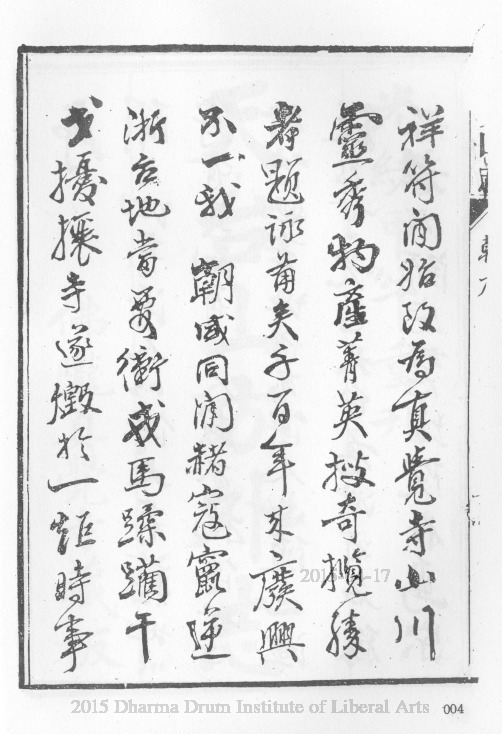 祥符間始改為真覺寺山川
靈秀物產菁英搜奇攬勝
題詠千百年來廢興
不一我 朝咸同間赭寇竄
浙台地當要衝戎馬蹂躪干
戈擾攘寺遂燬於一炬時事
2015 Dharma Drum Institute of Liberal Arts 004